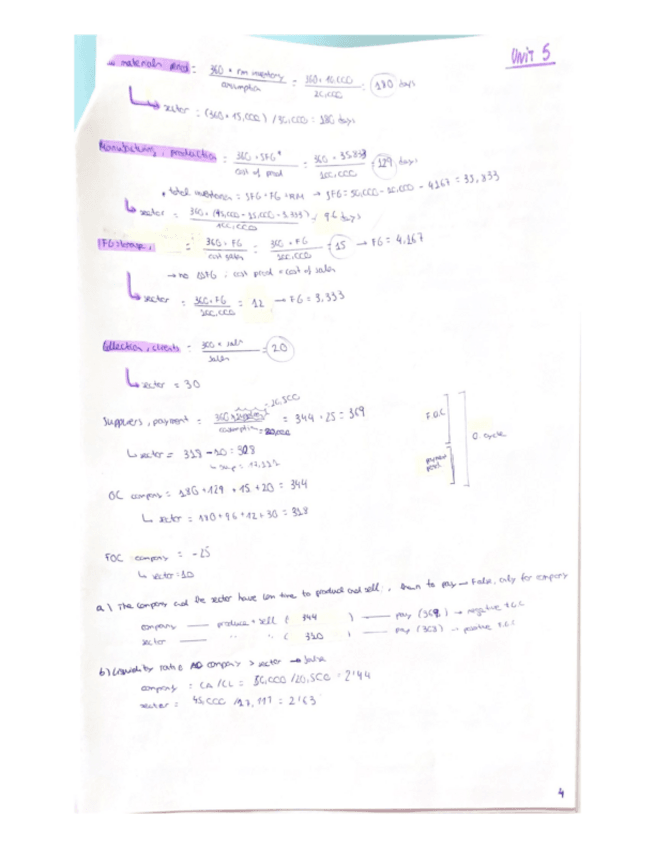 Unit 5
materials period = 360 * rm inventory / consumption = 360 * 10,000 / 20,000 = 180 days
sector : (360 * 15,000) / 30,000 = 180 days
Manufacturing, production = 360 * SFG* / cost of prod = 360 * 35.833 / 100,000 = 129 days
* total inventories = SFG + FG + RM → SFG = 50,000 - 10,000 - 4167 = 35,833
sector = 360 * (45,000 - 15,000 - 3.333) / 100,000 = 96 days
FG storage, = 360 * FG / cost sales = 360 * FG / 100,000 = 15 → FG = 4.167
→ no ΔFG ; cost prod = cost of sales
sector = 360 * FG / 100,000 = 12 → FG = 3,333
Collection, clients = 360 * / sales = 20
sector = 30
Suppliers, payment = 360 * suppliers / consumption = 20,000 = 344 + 25 = 369
20,500
sector = 318 - 10 = 308
OC company = 180 + 129 + 15 + 20 = 344
sector = 180 + 96 + 12 + 30 = 318
F.O.C
payment
O. cycle
FOC company = -25
sector = 10
a.) The company and the sector have less time to product and sell, than to pay → False, only for company
company — produce + sell ( 344 ) — pay (369) → negative
sector — " " ( 310 ) — pay (308) → positive
b) ratio company > sector → false
company = CA/CL = 50,000 / 20,500 = 2'44
sector = 45,000 / = 2'63
4